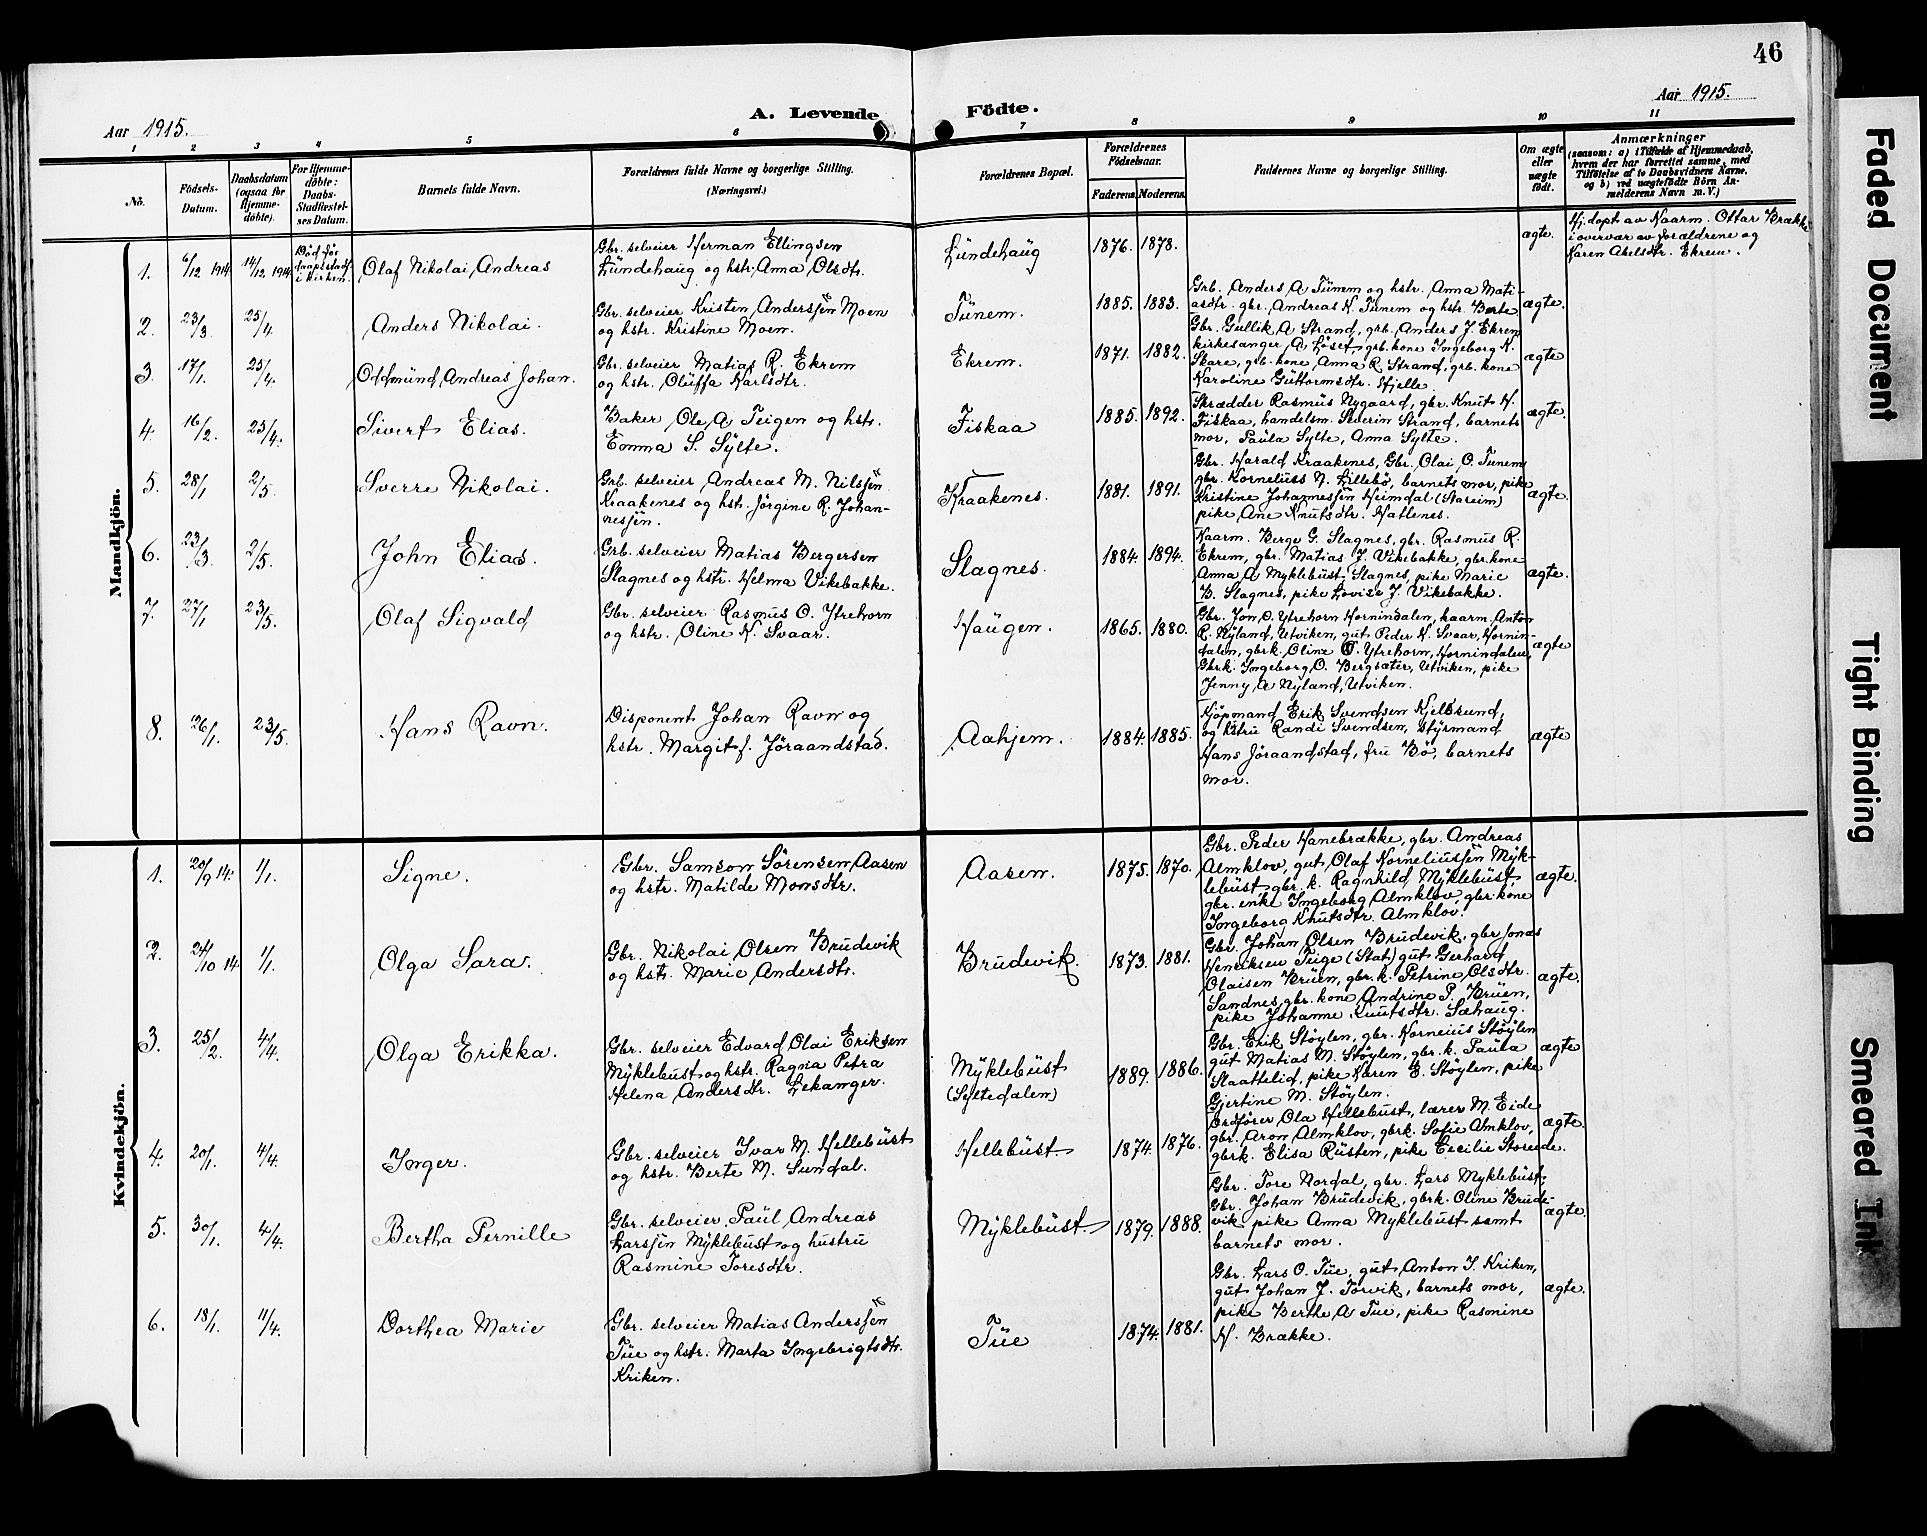 46
Aar 1915.
A. Levende Födte.
Aar 1915.
1 2 3 4 5 6 7 8 9 10 11
No.
Födsels-Datum.
Daabsdatum (ogsaa for Hjemme-döbte).
For Hjemme-döbte: Daabs-Stadfæstel-ses Datum.
Barnets fulde Navn.
Forældrenes fulde Navne og borgerlige Stilling.
(Næringsvei.)
Forældrenes Bopæl.
Forældrenes Födselsaar.
Faderens. Moderens.
Faddernes Navne og borgerlige Stilling.
Om ægte eller uægte födt.
Anmærkninger
(saasom: a) i Tilfælde af Hjemmedaab,
hvem der har forrettet samme, med
Tilföielse af to Daabsvidners Navne.
og b) ved uægtefödte Börn An-
melderens Navn m. V.)
Mandkjön.
1. 6/12 1914 14/12 1914 Död før daapsstadf. i kirken. Olaf Nikolai Andreas
Gbr. selveier Herman Ellingsen
Lundehaug og hstr. Anna Olsdtr.
Lundehaug 1876. 1878. ægte.
Hj. döpt av Kaarm. Ottar Brække
i overvær av forældrene og
Karen Abelsdtr. Ekrem.
2. 23/3. 25/4 Anders Nikolai.
Gbr. selveier Kristen Anderssen Moen
og hstr. Kristine Moen.
Tunem. 1885. 1883.
Grb. Anders A Tunem og hstr. Anna Mati-
asdtr. gbr. Andreas K. Tunem og hstr. Berte
ægte.
3. 17/1. 25/4. Oddmund Andreas Johan.
Gbr. selveier Matias R. Ekrem
og hstr. Oluffa Karlsdtr.
Ekrem. 1871. 1882.
Gbr. Gullik A Strand, grb. Anders J. Ekrem
kirkesanger A Løset, grb. kone Ingeborg K.
Skare, grb. kone Anna R Strand, grb. kone
Karoline Guttormsdtr. Hjelle.
ægte
4. 16/2. 25/4. Sivert Elias.
Baker Ole A Teigen og hstr.
Emma S. Sylte.
Fiskaa 1885. 1892.
Skrædder Rasmus Nygaard, gbr. Knut H.
Fiskaa, handelsm. Severin Strand, barnets
mor, Paula Sylte, Anna Sylte.
ægte.
5. 28/1 2/5. Sverre Nikolai.
Grb. selveier Andreas M. Nilssen
Kraakenes og hstr. Jörgine R. Johan-
nessen.
Kraakenes. 1881. 1891.
Gbr. Harald Kraakenes, Gbr. Olai O. Tunem
gbr. Kornelius N. Lillebö, barnets mor, pike
Kristine Johannessen Heimdal (Stareim)
pike Ane Knutsdtr. Hatlenes.
ægte.
6. 23/3. 2/5. John Elias.
Grb. selveier Matias Bergersen
Slagnes og hstr. Helma Vikebakke.
Slagnes. 1884. 1894.
Kaarm. Berge G. Slagnes, gbr. Rasmus R.
Ekrem, gbr. Matias J. Vikebakke, gbr. kone
Anna A Myklebust Slagnes, pike Marie
B. Slagnes, pike Lovise J. Vikebakke.
ægte.
7. 27/1 23/5. Olaf Sigvald
Gbr. selveier Rasmus O. Ytrehorn
og hstr. Oline K. Svaar.
Haugen. 1865. 1880.
Gbr. Jon O. Ytrehorn Hornindalen, kaarm. Anton
R. Nyland, Utviken, gut Peder K. Svaar, Hornin-
dalen, gbrk. Oline O. Ytrehorn, Hornindalen,
Gbrk. Ingeborg O. Bergsæter, Utviken, pike
Jenny A Nyland, Utviken.
ægte
8. 26/1. 23/5. Hans Ravn.
Disponent Johan Ravn og
hstr. Margit f. Jöraandstad.
Aahjem. 1884. 1885.
Kjöpmand Erik Svendsen Kjelsund,
og hstru Randi Svendsen, styrmand
Hans Jöraandstad, fru Bö, barnets
mor.
ægte
Kvindekjön.
1. 20/9 14. 1/1. Signe.
Gbr. Samson Sörensen Aasen
og hstr. Matilde Monsdtr.
Aasen. 1875. 1870.
Gbr. Peder Hanebrække, gbr. Andreas
Almklov, gut Olaf Korneliussen Myk-
lebust gbr. k. Ragnhild Myklebust,
gbr. enke Ingeborg Almklov, gbr. kone
Ingeborg Knutsdtr. Almklov.
ægte.
2. 24/10 14. 1/1. Olga Sara.
Gbr. Nikolai Olsen Brudevik
og hstr. Marie Andersdtr.
Brudevik. 1873. 1881.
Gbr. Johan Olsen Brudevik, gbr Jonas
Henriksen Teige (Stat) gut Gerhard
Olaisen Bruen, gbr. k. Petrine Olsdtr.
Sandnes, gbr. kone Andrine P. Bruen,
pike Johanne Knutsdtr. Sæhaug.
ægte.
3. 25/2. 4/4. Olga Erikka.
Gbr. selveier Edvard Olai Eriksen
Myklebust og hstr. Ragna Petra
Helena Andersdtr. Lekanger.
Myklebust
(Syltedalen) 1889. 1886.
Gbr. Erik Støylen, gbr. Kornelius Støylen
gut Matias M. Støylen, gbr. k. Paula
Slaattelid, pike Karen E. Støylen, pike
Gjertine M. Støylen.
ægte
4. 20/1. 4/4. Inger.
Gbr. selveier Ivar M. Hellebust
og hstr. Berte M. Sundal.
Hellebust 1874. 1876.
Ordfører Ola Hellebust, lærer M. Eide
gbr. Aron Almklov, gbrk. Sofie Almklov,
gbrk. Elisa Rusten, pike Cecilie Storeide.
ægte.
5. 30/1. 4/4. Bertha Pernille
Gbr. selveier Paul Andreas
Larssen Myklebust og hustru
Rasmine Toresdtr.
Myklebust 1879. 1888.
Gbr. Tore Nordal, gbr. Lars Myklebust,
Gbr. Johan Brudevik, gbrk. Oline Brude-
vik pike Anna Myklebust samt
barnets mor.
ægte.
6. 18/1. 11/4. Dorthea Marie
Gbr. selveier Matias Anderssen
Tue og hstr. Marta Ingebrigtsdtr.
Kriken.
Tue 1874. 1881.
Gbr. Lars O. Tue, gut Anton I. Kriken,
gut Johan J. Torvik, barnets mor,
pike Berthe A Tue, pike Rasmine
H. Brække.
ægte.
Faded Document
Tight Binding
Smeared Ink